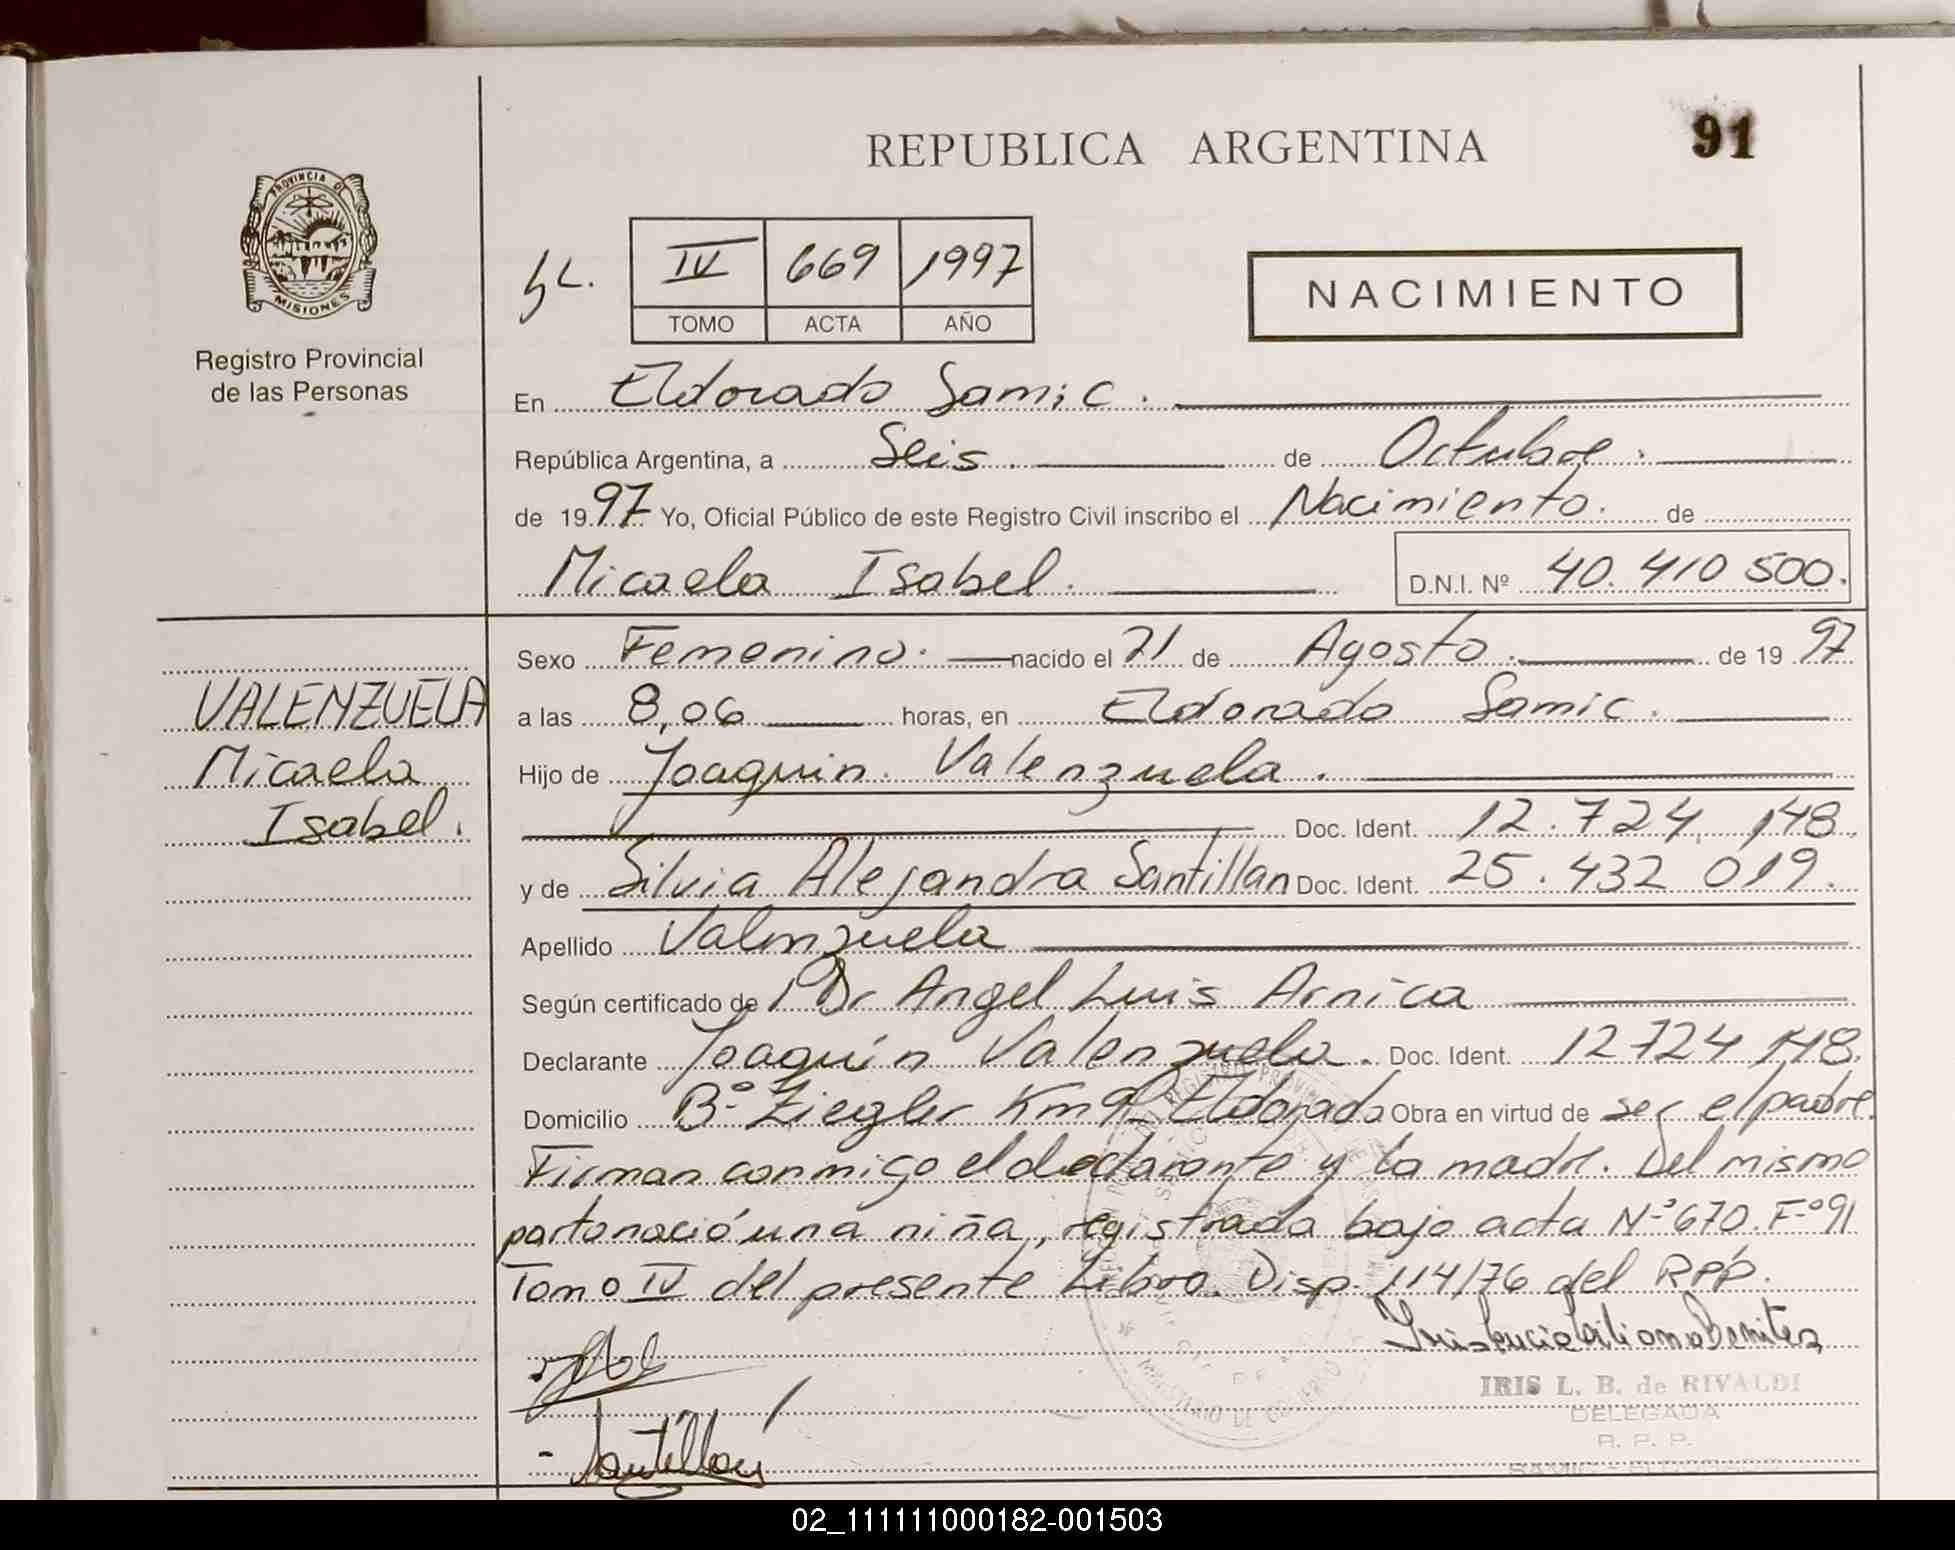 REPUBLICA ARGENTINA
91
PROVINCIA DE
MISIONES
Registro Provincial
de las Personas
IV 669 1997
TOMO ACTA AÑO
NACIMIENTO
En Eldorado Samic.
República Argentina, a Seis. de Octubre.
de 1997 Yo, Oficial Público de este Registro Civil inscribo el Nacimiento. de
Micaela Isabel. D.N.I. Nº 40.410 500.
VALENZUELA
Micaela
Isabel.
Sexo Femenino. nacido el 21 de Agosto. de 1997
a las 8,06 horas, en Eldorado Samic.
Hijo de Joaquin. Valenzuela.
Doc. Ident. 12.724.148.
y de Silvia Alejandra Santillan Doc. Ident. 25.432 019.
Apellido Valenzuela
Según certificado de Dr Angel Luis Arnica
Declarante Joaquín Valenzuela. Doc. Ident. 12 724 148.
Domicilio Bº Ziegler Km 9 Eldorado Obra en virtud de ser el padre.
Firman conmigo el declarante y la madre. Del mismo
parto nació una niña, registrada bajo acta Nº 670. Fº 91
Tomo IV del presente Libro. Disp. 114/76 del RPP.
Santillan
IRIS L. B. de RIVALDI
DELEGADA
R. P. P.
SAMIC - ELDORADO
MINISTERIO DE GOBIERNO
02_111111000182-001503